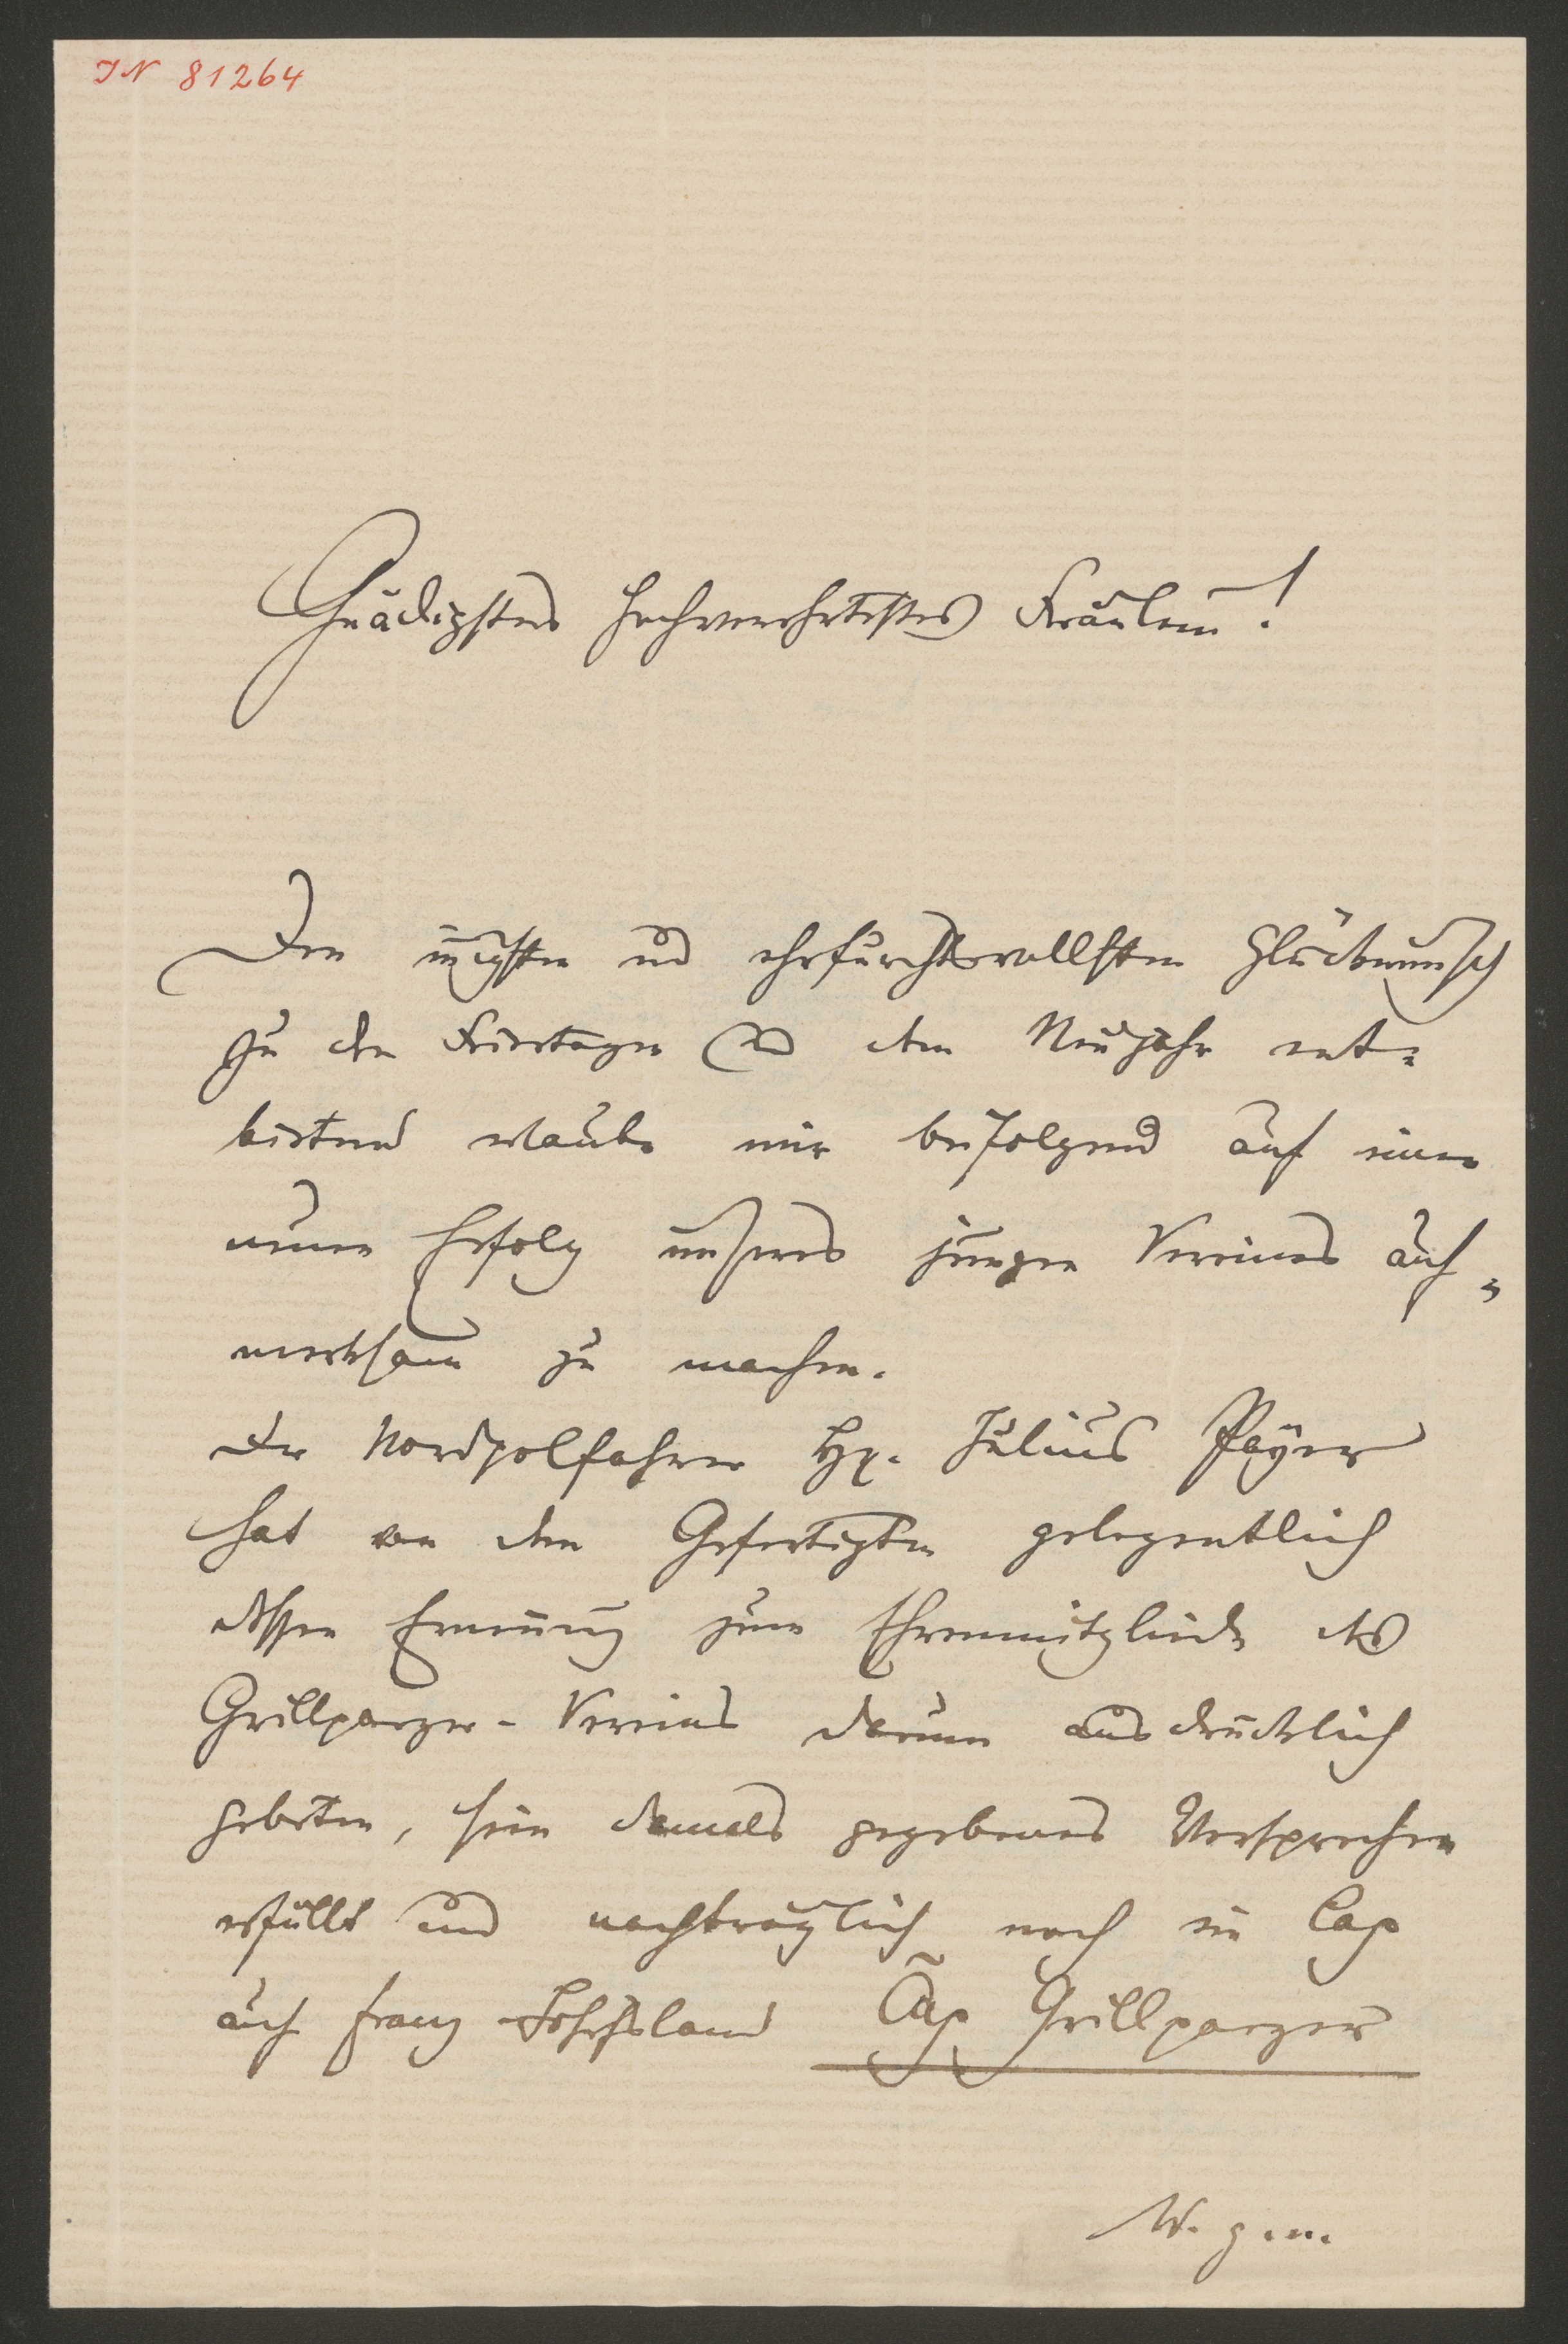 IN 81264
Gnädigstes hochverehrtestes Fräulein!
Den innigsten und ehrfurchtsvollsten Glückwunsch
zu den Feiertagen und dem Neujahr ent=
bietend erlaube mir beifolgend auf einen
neuen Erfolg unseres jungen Vereines auf=
merksam zu machen.
Der Nordpolfahrer Hr. Julius Payer
hat von dem Gefertigten gelegentlich
dessen Ernennung zum Ehrenmitgliede des
Grillparzer-Vereins darum ausdrücklich
gebeten, sein damals gegebenes Versprechen
erfüllt und nachträglich noch ein Cap
auf Franz-Josefsland Cap Grillparzer